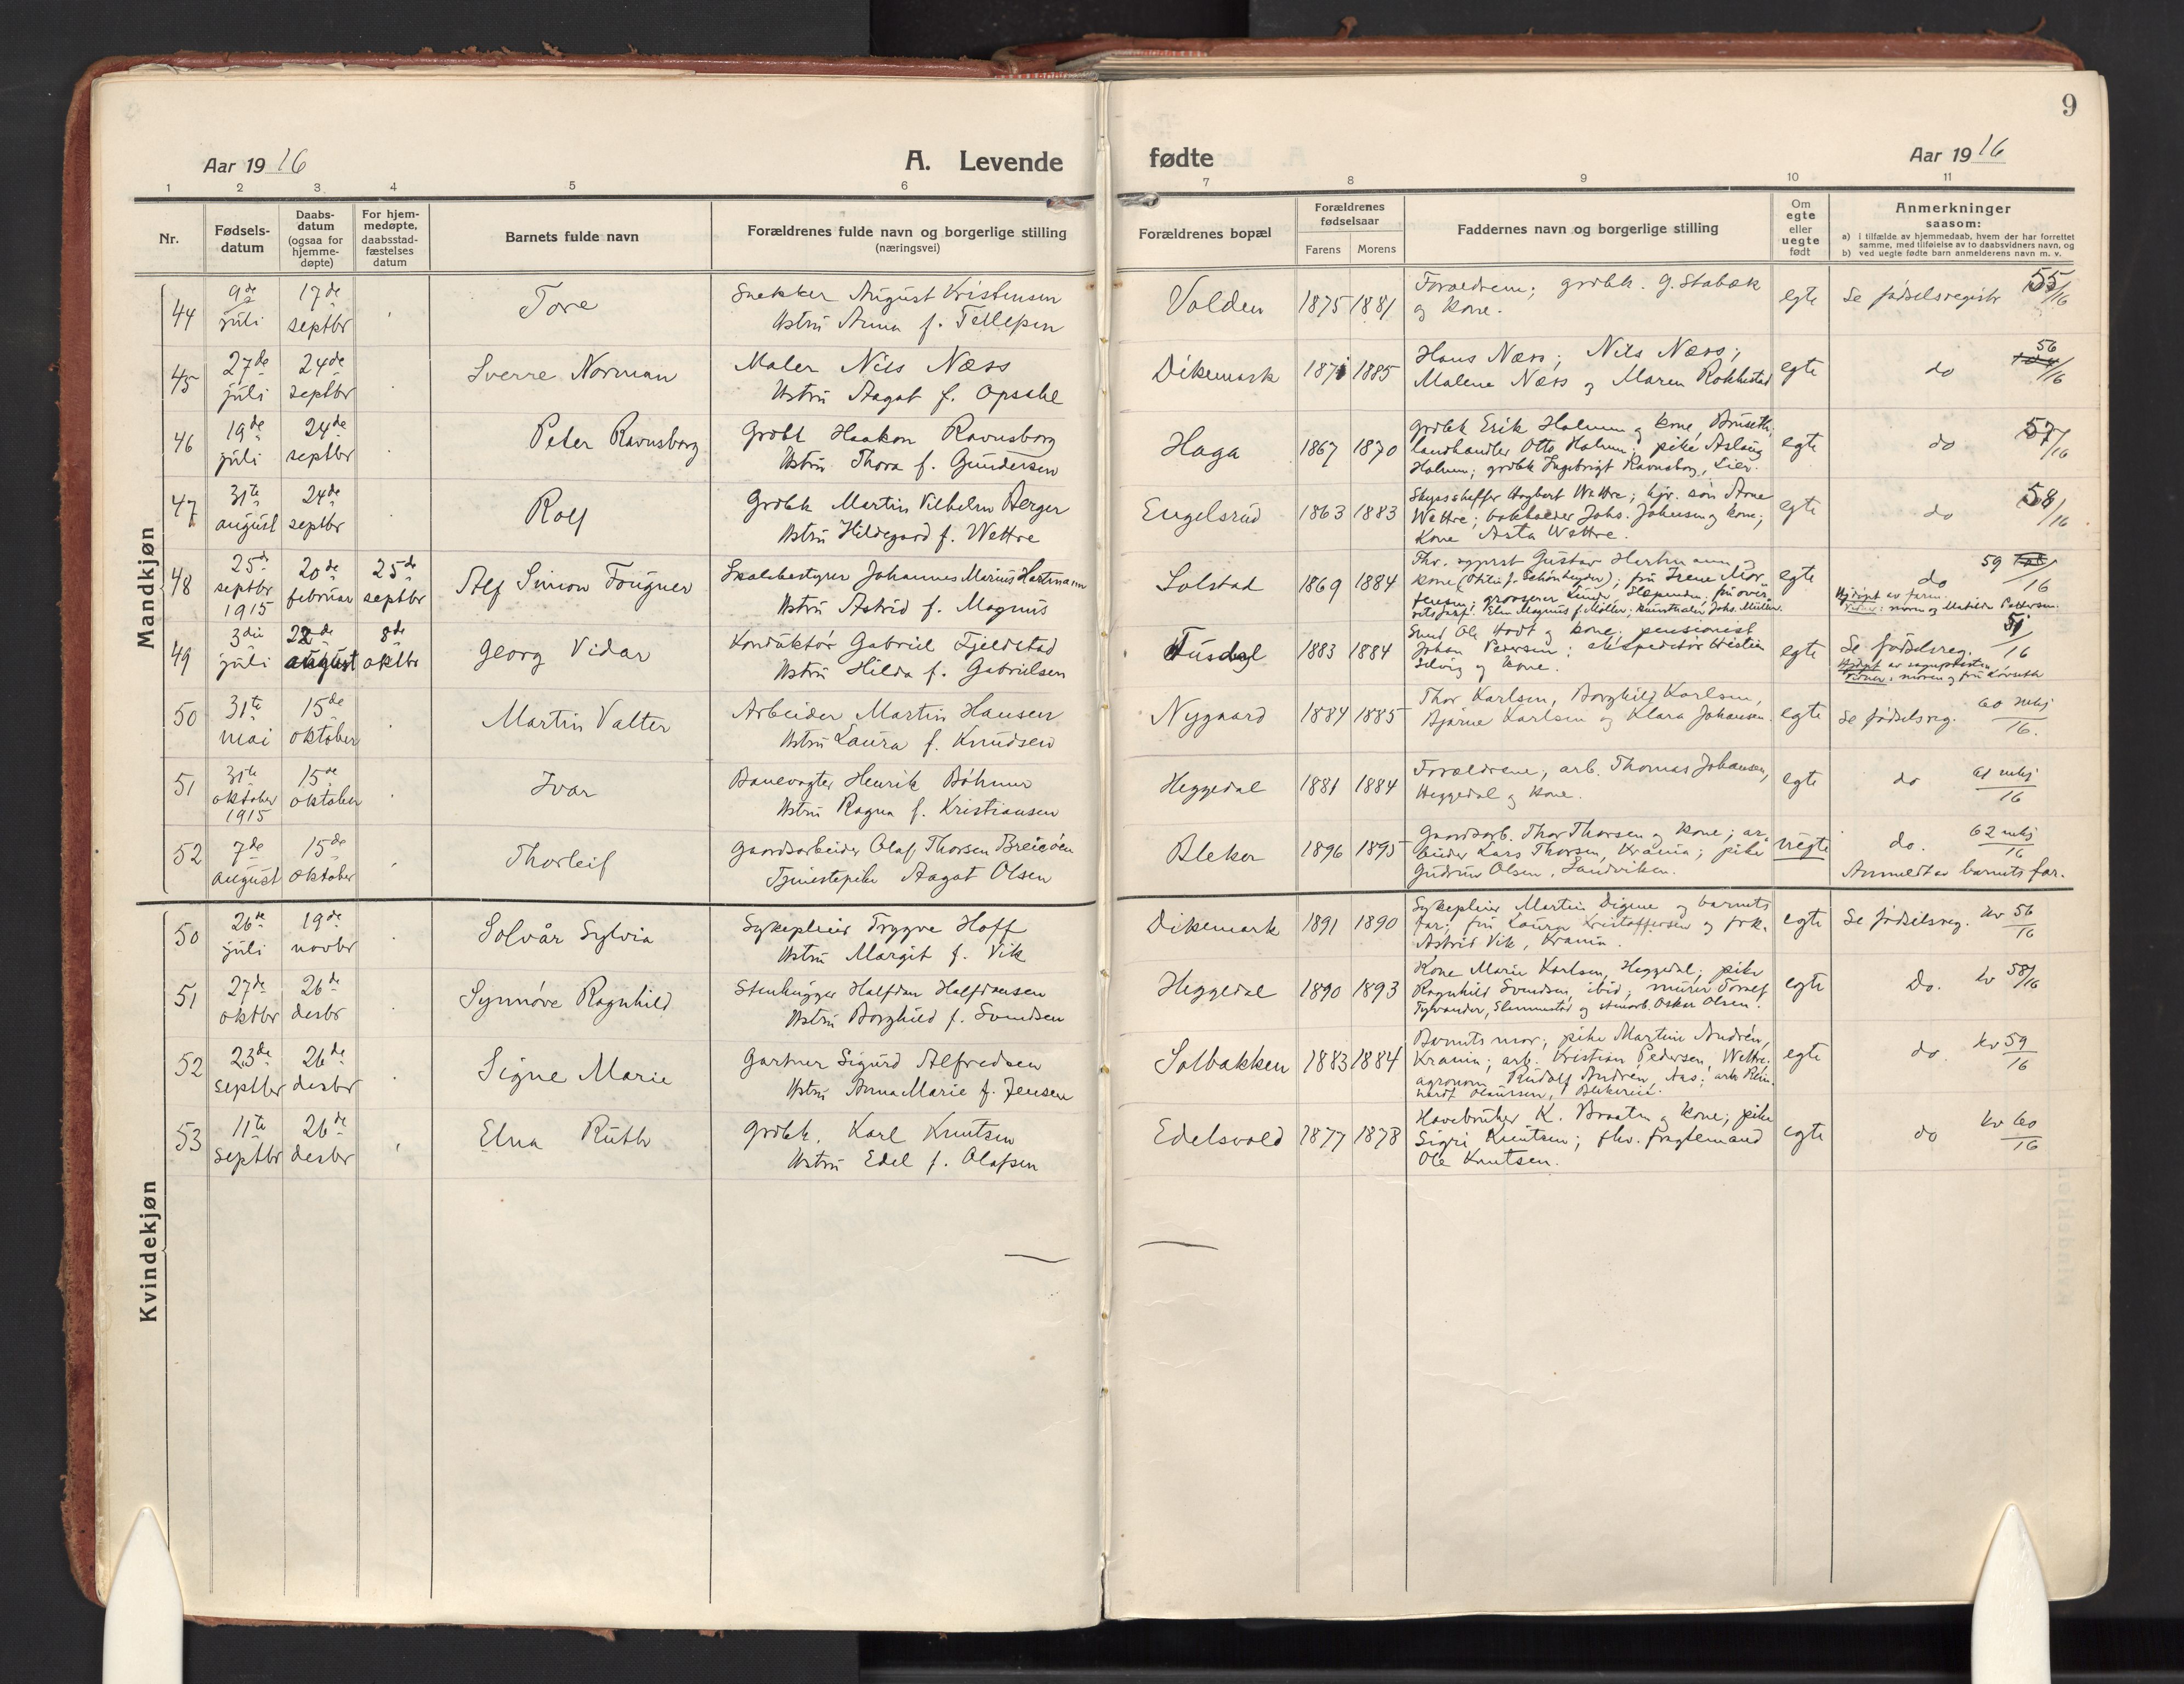 9
Aar 1916
A. Levende
fødte
Aar 1916
1 2 3 4 5 6 7 8 9 10 11
Nr.
Fødsels-
datum
Daabs-
datum
(ogsaa for
hjemme-
døpte)
For hjem-
medøpte,
daabsstad-
fæstelses
datum
Barnets fulde navn
Forældrenes fulde navn og borgerlige stilling
(næringsvei)
Forældrenes bopæl
Forældrenes
fødselsaar
Farens Morens
Faddernes navn og borgerlige stilling
Om
egte
eller
uegte
født
Anmerkninger
saasom:
a) i tilfælde av hjemmedaab, hvem der har forrettet
samme, med tilføielse av to daabsvidners navn, og
b) ved uegte fødte barn anmelderens navn m. v.
Mandkjøn
44
9de juli
17de septbr
Tore
Snekker August Kristensen
Hstru Anna f. Tellefsen
Volden
1875 1881
Forældrene; grdbk. G. Stabæk
og kone.
egte
Se fødselsregistr 55/16
45
27de juli
24de septbr
Sverre Norman
Maler Nils Næss
Hstru Aagot f. Opsahl
Dikemark
1871 1885
Hans Næss; Nils Næss;
Malene Næss og Maren Rokkestad
egte
do 56/16
46
19de juli
24de septbr
Peter Ravnsborg
Grdbk Haakon Ravnsborg
Hstru Thora f. Gundersen
Haga
1867 1870
grdbk Erik Holmen og kone, Bruseth;
landhandler Otto Holmen; pike Aslaug
Holmen; grdbk Ingebrigt Ravnsborg, Lier.
egte
do 57/16
47
31te august
24de septbr
Rolf
Grdbk Martin Vilhelm Berger
Hstru Hildegard f. Wettre
Engelsrud
1863 1883
Skydsskaffer Hagbart Wettre; gjr. søn Arne
Wettre; bokholder Johs. Johnsen og kone;
Kone Asta Wettre.
egte
do 58/16
48
25de septbr 1915
20de februar
25de septbr
Alf Simon Fougner
Skolebestyrer Johannes Marius Hartmann
Hstru Astrid f. Magnus
Solstad
1869 1884
Thv. Gustav Hartmann og
kone (Otilie f. Schønheyder); fru Irene Mor-
tensen; grosserer Lunde, Slependen; fru over-
Elen Magnus f. Møller; kunstmaler Johs. Müller.
egte
do 59/16
Hjdøpt av
Vidner: moren og Matilde Pettersen.
49
3die juli
22de august
8de oktbr
Georg Vidar
Konduktør Gabriel Fjeldstad
Hstru Hilda f. Gabrielsen
Fusdal
1883 1884
Smed Ole Hodt og kone; pensionist
Johan Pedersen; ekspeditør Kristian
Selvig og kone.
egte
Se fødselsreg. 51/16
Hjdøpt av sogneprsten
Vidner: moren og fru
50
31te mai
15de oktober
Martin Valter
Arbeider Martin Hansen
Hstru Laura f. Knudsen
Nygaard
1884 1885
Thor Karlsen, Borghild Karlsen,
Bjarne Karlsen og Klara Johansen.
egte
Se fødselsreg. 60 mkj/16.
51
31te oktober 1915
15de oktober
Ivar
Banevogter Henrik Bøhmer
Hstru Ragna f. Kristiansen
Heggedal
1881 1884
Forældrene, arb. Thomas Johansen,
Heggedal og kone.
egte
do 61 mkj/16
52
7de august
15de oktober
Thorleif
Gaardsarbeider Olaf Thorsen Breiaøen
Tjenestepike Aagot Olsen
Bleker
1896 1895
Gaardsarb. Thor Thorsen og kone; ar-
beider Lars Thorsen, Krania; pike
Gudrun Olsen, Sandviken.
uegte
do. 62 mkj/16
Anmeldt av barnets far.
Kvindekjøn
50
26de juli
19de novbr
Solvår Sylvia
Sykepleier Trygve Hoff
Hstru Margit f. Vik
Dikemark
1891 1890
Sykepleier Martin Digene og barnets
far; fru Laura Kristoffersen og frk.
Astrid Vik, Krania.
egte
Se fødselsreg. kv 56/16
51
27de oktbr
26de desbr
Synnøve Ragnhild
Stenhugger Halfdan Halfdansen
Hstru Borghild f. Svendsen
Heggedal
1890 1893
Kone Marie Karlsen, Heggedal; pike
Ragnhild Svendsen, ibid; murer Toralf
Tyvander, Slemmestad og stenarb. Oskar Olsen.
egte
Do. kv 58/16
52
23de septbr
26de desbr
Signe Marie
Gartner Sigurd Alfredsen
Hstru Anna Marie f. Jensen
Solbakken
1883 1884
Barnets mor; pike Martine Andrén,
Krania; arb. Kristian Pedersen, Wettre;
agronom Rudolf Andrén, Aas; arb. Rein-
hardt Blekereié.
egte
do. kv 59/16
53
11te septbr
26de desbr
Elna Ruth
Grdbk. Karl Knutsen
Hstru Edel f. Olafsen
Edelsvold
1877 1878
Havebruker K. Braaten og kone; pike
Sigri Knutsen; fhv. fragtemand
Ole Knutsen.
egte
do kv 60/16